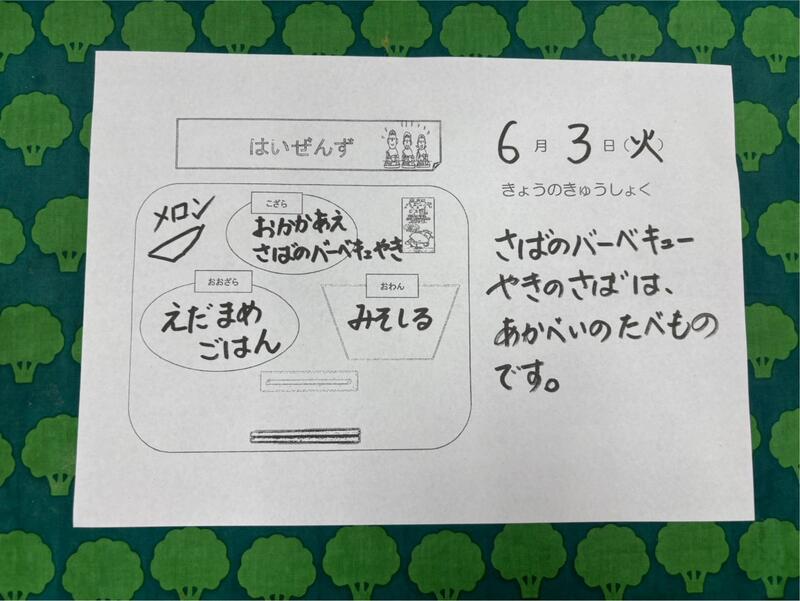 はいぜんず
6月3日(火)
きょうのきゅうしょく
メロン
こざら
おかかあえ
さばのバーベキュやき
おおざら
えだまめ
ごはん
おわん
みそしる
さばのバーベキュー
やきのさばは、
あかべいのたべもの
です。